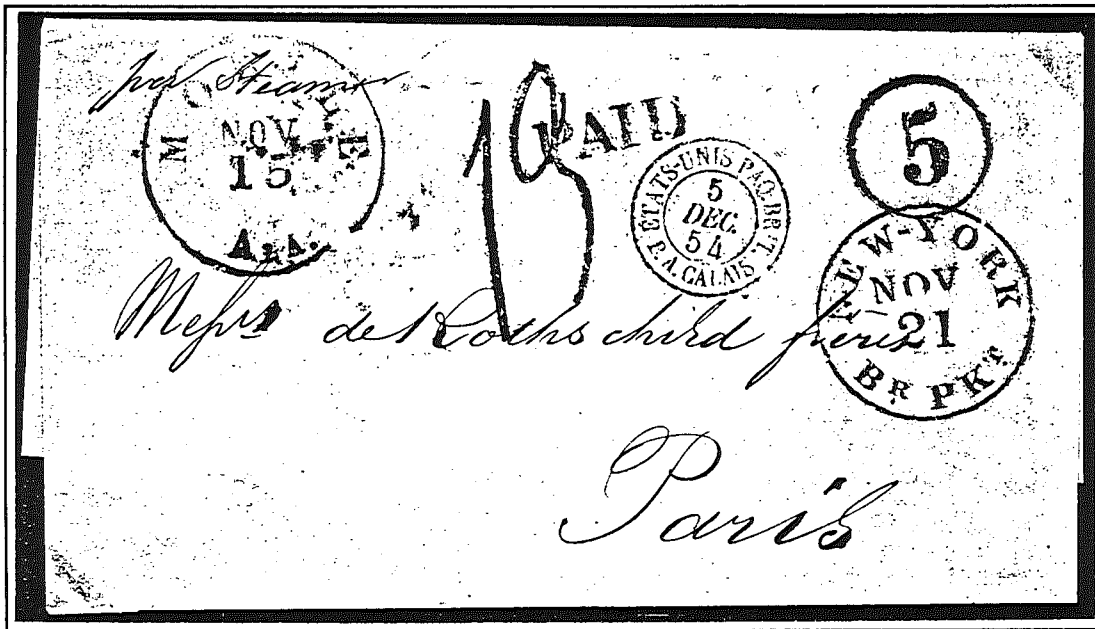 per Steamer
MOBILE
NOV.
15
Ala.
13
PAID
ÉTATS-UNIS PAQ. BR. T.
5
DEC.
54
P. A. CALAIS
5
NEW-YORK
NOV
21
BR PKT
Messrs de Rothschild frères
Paris